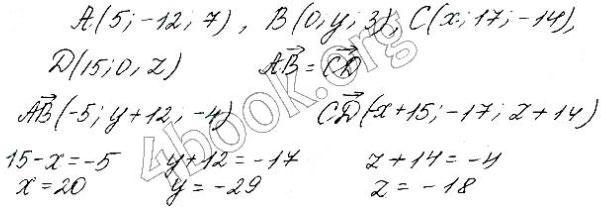 A(5; -12; 7), B(0; y; 3), C(x; 17; -14),
D(15; 0; z) A⃗B = C⃗D
A⃗B(-5; y+12; -4) C⃗D(-x+15; -17; z+14)
15-x=-5 y+12=-17 z+14=-4
x=20 y=-29 z=-18
4book.org